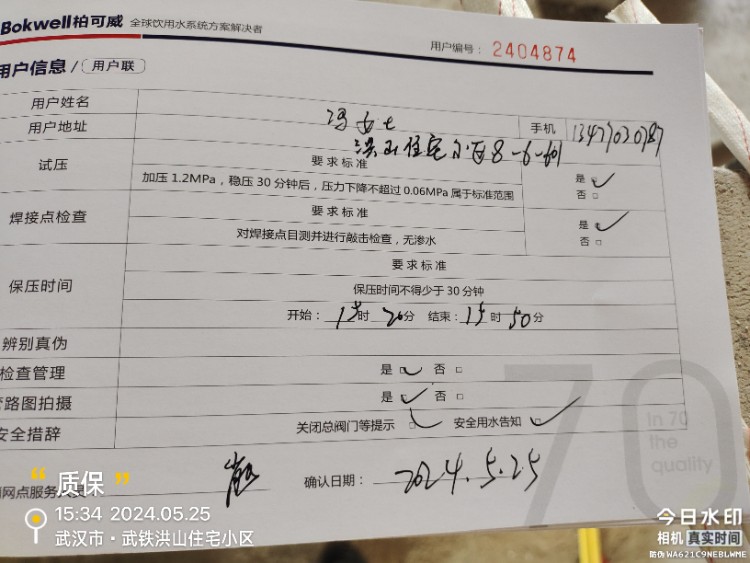 Bokwell柏可威 全球饮用水系统方案解决者
用户编号： 2404874
用户信息 / 用户联
用户姓名 冯女士 手机 13477030787
用户地址 洪山住宅小区8-6-601
试压 要求标准
加压 1.2MPa，稳压 30 分钟后，压力下降不超过 0.06MPa 属于标准范围
是 ☑
否 □
焊接点检查 要求标准
对焊接点目测并进行敲击检查，无渗水
是 ☑
否 □
保压时间 要求标准
保压时间不得少于 30 分钟
开始：15时 20分 结束：15时 50分
辨别真伪
检查管理 是 ☑ 否 □
管路图拍摄 是 ☑ 否 □
安全措辞 关闭总阀门等提示 ☑ 安全用水告知 ☑
网点服务人员
确认日期： 2024.5.25
70
In 70
the
quality
“质保”
15:34 2024.05.25
武汉市·武铁洪山住宅小区
今日水印
相机 真实时间
防伪 WA621C9NEBLWME